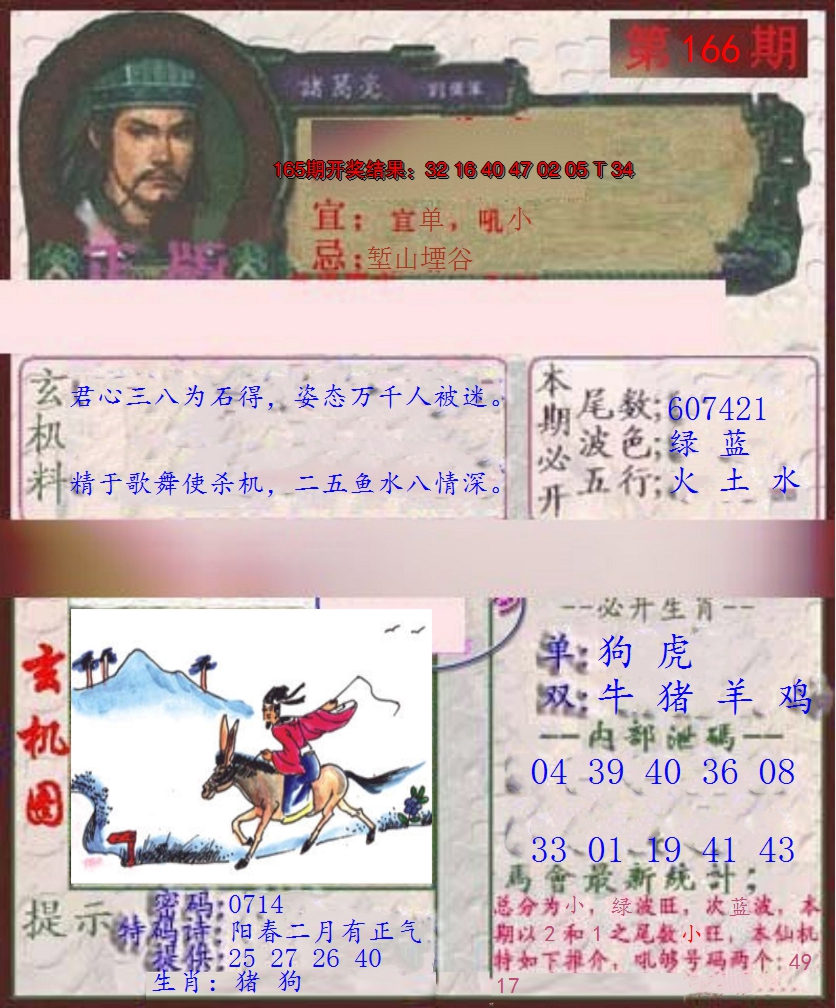 第166期
諸葛亮
165期开奖结果：32 16 40 47 02 05 T 34
宜：宜单，吼小
忌：堑山堙谷
正版
玄机料
君心三八为石得，姿态万千人被迷。
精于歌舞使杀机，二五鱼水八情深。
本期必开
尾数;607421
波色;绿 蓝
五行;火 土 水
玄机图
--必开生肖--
单:狗 虎
双:牛 猪 羊 鸡
--内部泄碼--
04 39 40 36 08
33 01 19 41 43
馬會最新統計；
总分为小，绿波旺，次蓝波，本
期以2和1之尾数小旺，本仙机
特如下推介，吼够号码两个:49
17
提示
密码:0714
特码诗:阳春二月有正气
提供:25 27 26 40
生肖：猪 狗